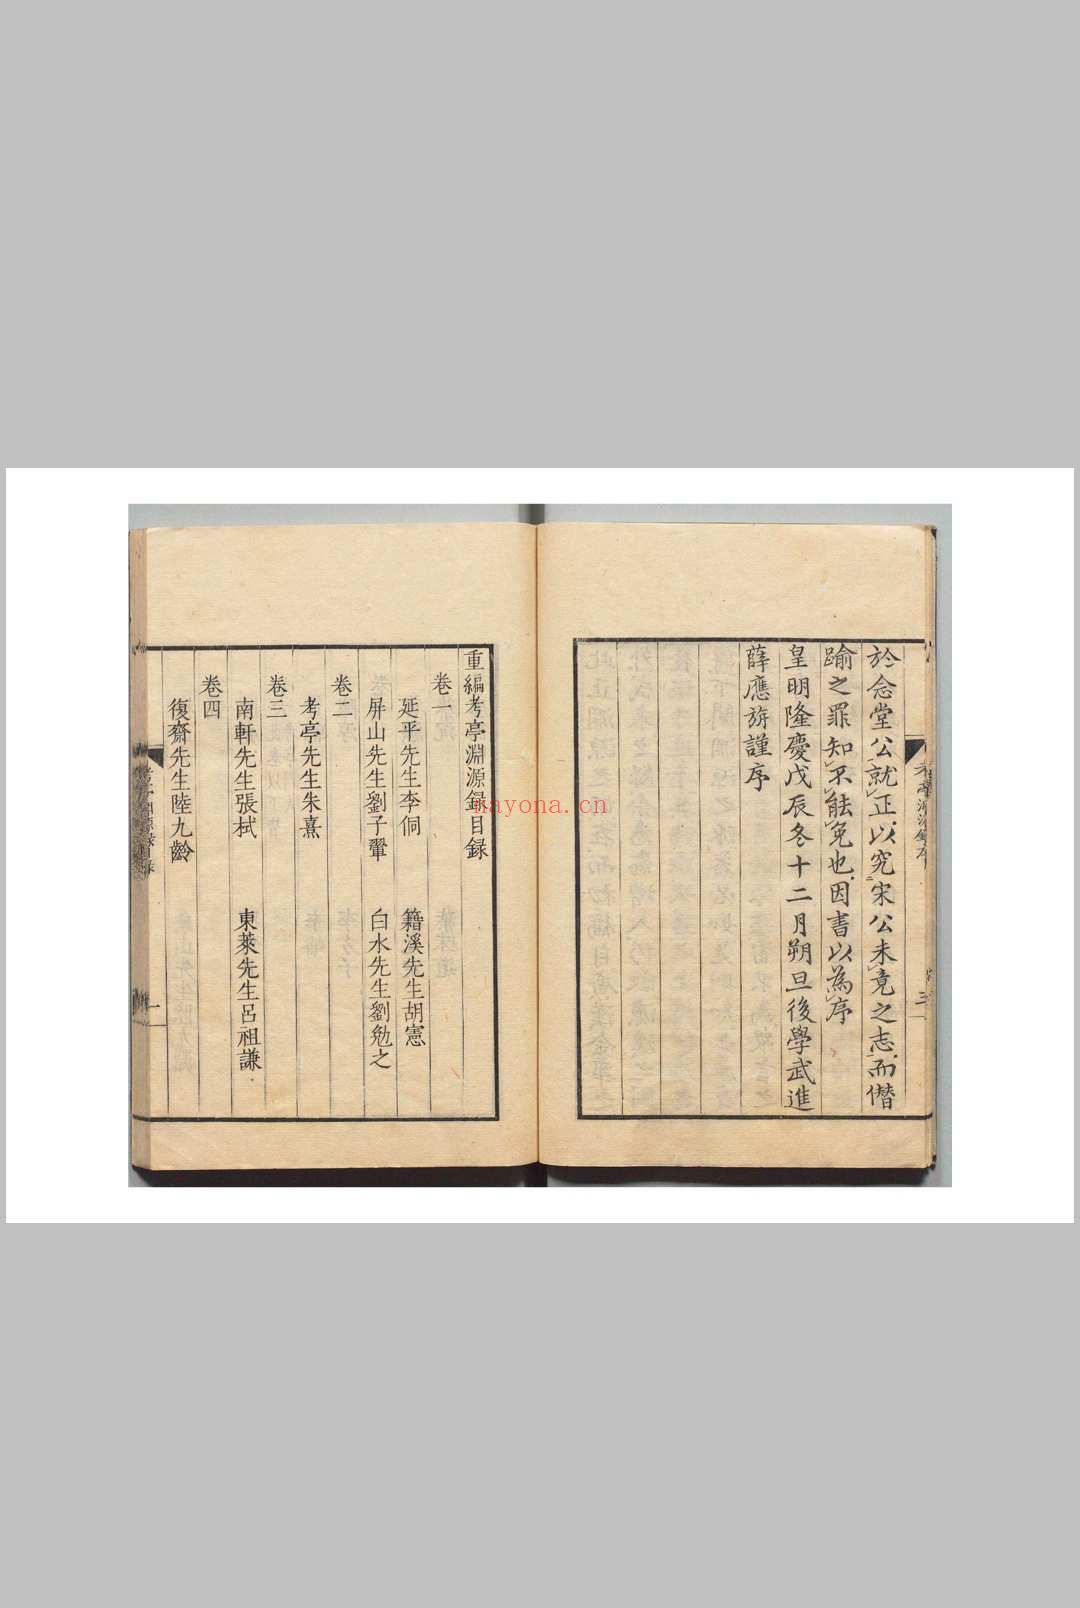 於念堂公就正以究宋公未竟之志而僭
踰之罪知不能免也因書以為序
皇明隆慶戊辰冬十二月朔旦後學武進
薛應旂謹序
三
重編考亭淵源錄目錄
卷一
延平先生李侗 籍溪先生胡憲
屏山先生劉子翬 白水先生劉勉之
卷二
考亭先生朱熹
卷三
南軒先生張栻 東萊先生呂祖謙
卷四
復齋先生陸九齡
一
nayona.cn